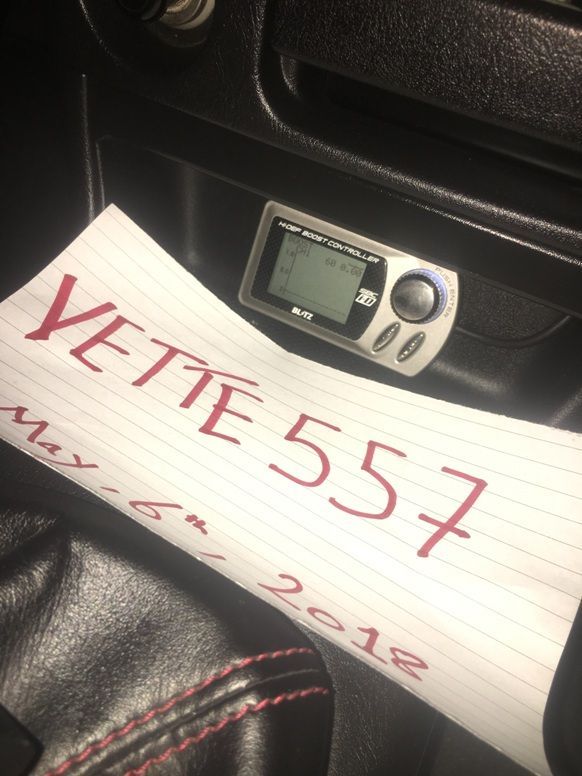 HI DEF BOOST CONTROLLER
60 0.00
SBC
BLITZ
PUSH ENTER
VETTE 557
May, 6th, 2018